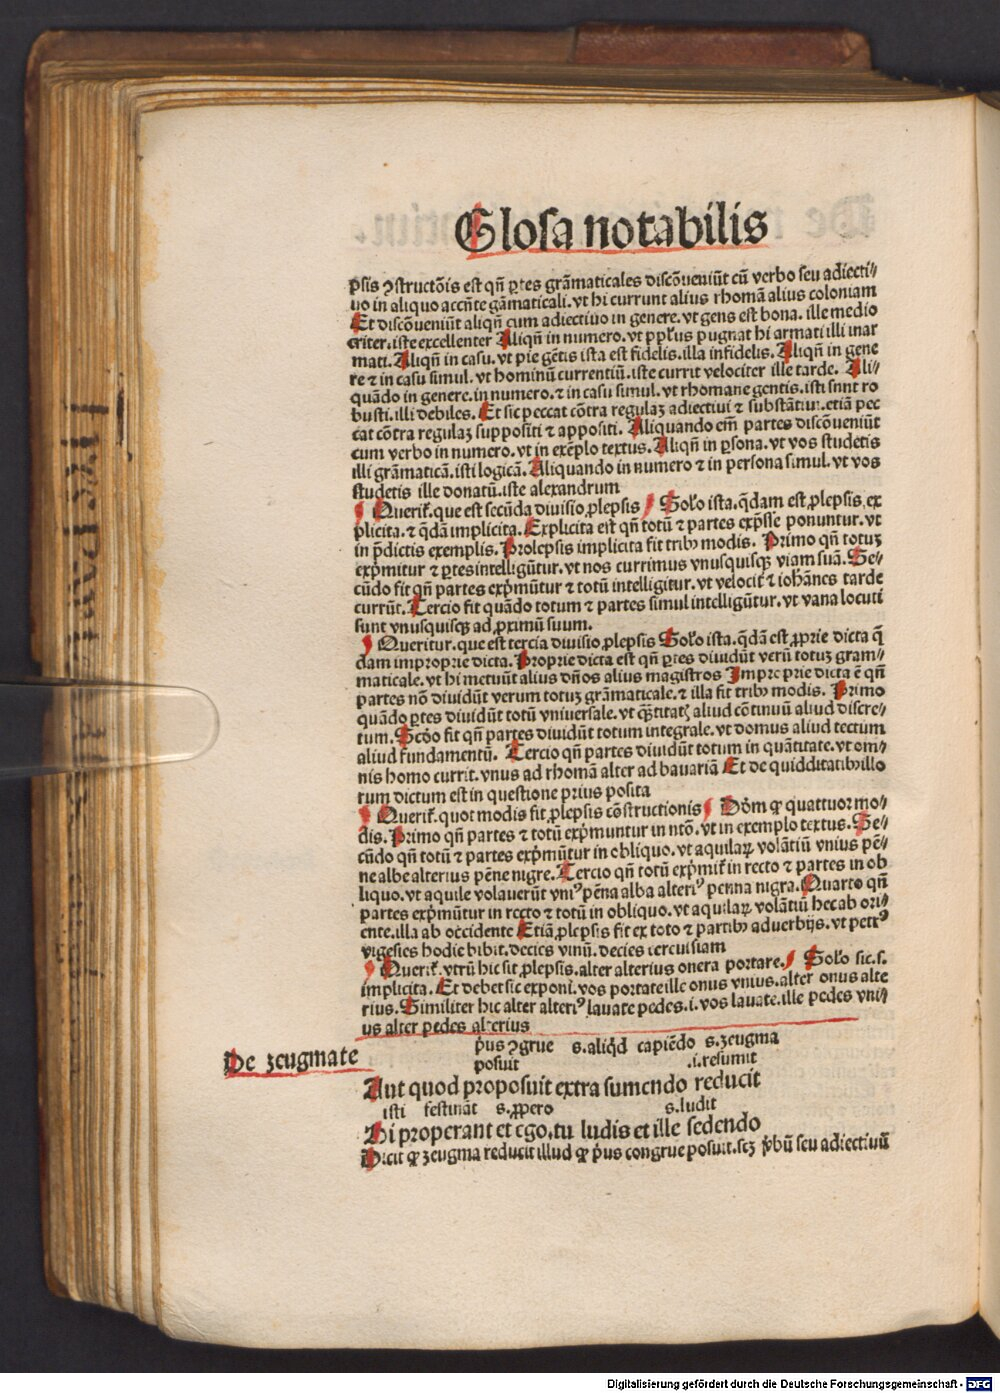 Glosa notabilis
p̄sis ꝯstructōis est qn̄ ꝑtes grāmaticales discōueniūt cū verbo seu adiecti⸗
uo in aliquo accn̄te gāmaticali. vt hi currunt alius rhomā alius coloniam
Et discōueniūt aliqn̄ cum adiectiuo in genere. vt gens est bona. ille medio
criter. iste excellenter Aliqn̄ in numero. vt pp̄lus pugnat hi armati illi inar
mati. Aliqn̄ in casu. vt pie gētis ista est fidelis. illa infidelis. Aliqn̄ in gene
re ⁊ in casu simul. vt hominū currentiū. iste currit velociter ille tarde. Ali⸗
quādo in genere. in numero. ⁊ in casu simul. vt rhomane gentis. isti sunt ro
busti. illi debiles. Et sic peccat cōtra regulaꝫ adiectiui ⁊ substātiui. etiā pec
cat cōtra regulaꝫ suppositi ⁊ appositi. Aliquando em̄ partes discōueniūt
cum verbo in numero. vt in exēplo textus. Aliqn̄ in ꝑsona. vt vos studetis
illi grāmaticā. isti logicā. Aliquando in numero ⁊ in persona simul. vt vos
studetis ille donatū. iste alexandrum
Querit̄. que est secūda diuisio ꝓlepsis Solō ista. q̄dam est ꝓlepsis ex
plicita. ⁊ q̄dā implicita. Explicita est qn̄ totū ⁊ partes exp̄sse ponuntur. vt
in p̄dictis exemplis. Prolepsis implicita fit tribꝰ modis. Primo qn̄ totuꝫ
exp̄mitur ⁊ ꝑtes intelligūtur. vt nos currimus vnusquisqꝫ viam suā. Se⸗
cūdo fit qn̄ partes exp̄mūtur ⁊ totū intelligitur. vt velocit̄ ⁊ iohānes tarde
currūt. Tercio fit quādo totum ⁊ partes simul intelligūtur. vt vana locuti
sunt vnusquisqꝫ ad ꝓximū suum.
Queritur. que est tercia diuisio ꝓlepsis Solō ista. q̄dā est ꝓprie dicta q̄
dam improprie dicta. Proprie dicta est qn̄ ꝑtes diuidūt verū totuꝫ gram⸗
maticale. vt hi metuūt alius dn̄os alius magistros Improprie dicta ē qn̄
partes nō diuidūt verum totuꝫ grāmaticale. ⁊ illa fit tribꝰ modis. Primo
quādo ꝑtes diuidūt totū vniuersale. vt q̄ntitatꝭ aliud cōtinuū aliud discre⸗
tum. Scḋo fit qn̄ partes diuidūt totum integrale. vt domus aliud tectum
aliud fundamentū. Tercio qn̄ partes diuidūt totum in quātitate. vt om⸗
nis homo currit. vnus ad rhomā alter ad bauariā Et de quidditatibꝰ illo
rum dictum est in questione prius posita
Querit̄. quot modis fit ꝓlepsis cōstructionis Dōm ꝙ quattuor mo⸗
dis. Primo qn̄ partes ⁊ totū exp̄muntur in ntō. vt in exemplo textus. Se⸗
cūdo qn̄ totū ⁊ partes exp̄mūtur in obliquo. vt aquilaꝝ volātiū vnius pē⸗
ne albe alterius pēne nigre. Tercio qn̄ totū exp̄mit̄ in recto ⁊ partes in ob
liquo. vt aquile volauerūt vniꝰ pēna alba alteriꝰ penna nigra. Quarto qn̄
partes exp̄mūtur in recto ⁊ totū in obliquo. vt aquilaꝝ volātiū hec ab ori⸗
ente. illa ab occidente Etiā ꝓlepsis fit ex toto ⁊ partibꝰ aduerbijs. vt petrꝰ
vigesies hodie bibit. decies vinū. decies ceruisiam
Querit̄. vtrū hic sit ꝓlepsis. alter alterius onera portare. Solō sic. s.
implicita. Et debet sic exponi. vos portate ille onus vnius. alter onus alte
rius. Similiter hic alter alteriꝰ lauate pedes. i. vos lauate. ille pedes vni⸗
us alter pedes alterius
De zeugmate
p̄us ꝯgrue s. aliqd̄ capiēdo s. zeugma
posuit .i. resumit
Aut quod proposuit extra sumendo reducit
isti festināt s. ꝓpero s. ludit
Hi properant et ego. tu ludis et ille sedendo
Dicit ꝙ zeugma reducit illud ꝙ p̄us congrue posuit. scꝫ v̄bū seu adiectiuū
Digitalisierung gefördert durch die Deutsche Forschungsgemeinschaft - DFG